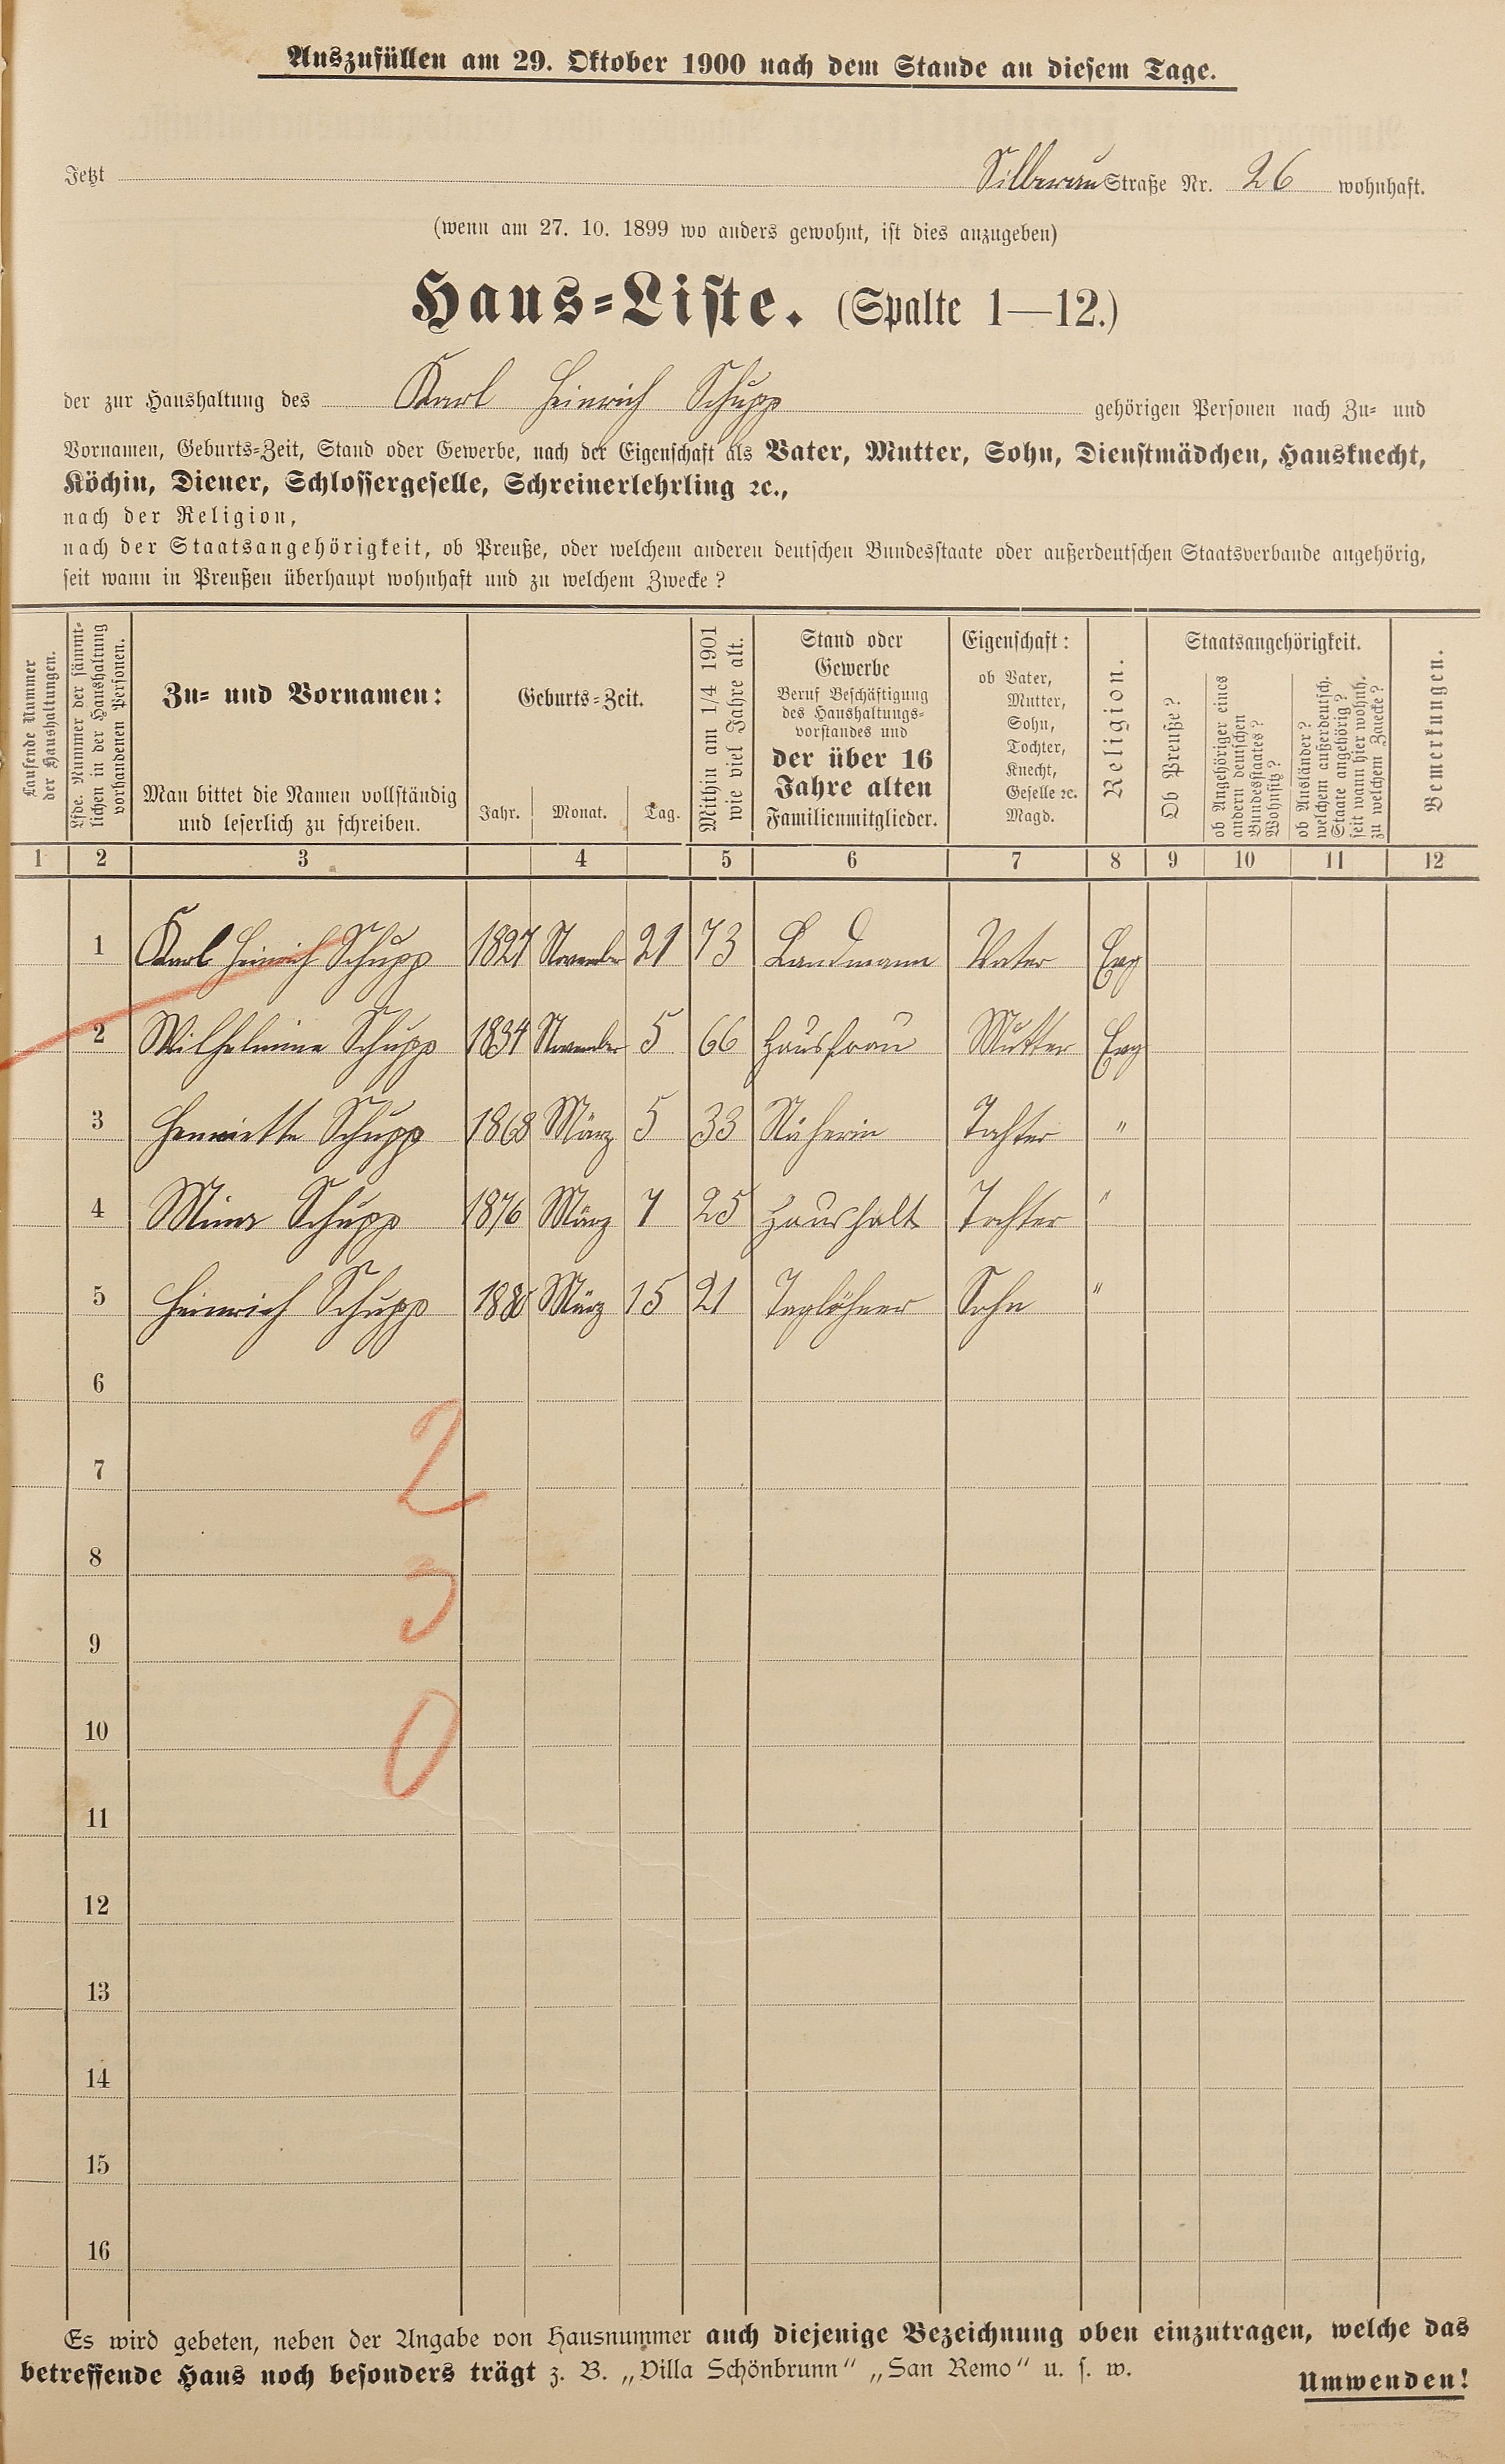 Auszufüllen am 29. Oktober 1900 nach dem Stande an diesem Tage.
Jetzt Silberau Straße Nr. 26 wohnhaft.
(wenn am 27. 10. 1899 wo anders gewohnt, ist dies anzugeben)
Haus-Liste. (Spalte 1—12.)
der zur Haushaltung des Karl Heinrich Schupp gehörigen Personen nach Zu- und
Vornamen, Geburts-Zeit, Stand oder Gewerbe, nach der Eigenschaft als Vater, Mutter, Sohn, Dienstmädchen, Hausknecht,
Köchin, Diener, Schlossergeselle, Schreinerlehrling ꝛc.,
nach der Religion,
nach der Staatsangehörigkeit, ob Preuße, oder welchem anderen deutschen Bundesstaate oder außerdeutschen Staatsverbande angehörig,
seit wann in Preußen überhaupt wohnhaft und zu welchem Zwecke?
Laufende Nummer
der Haushaltungen.
Lfde. Nummer der sämmt-
lichen in der Haushaltung
vorhandenen Personen.
Zu- und Vornamen:
Man bittet die Namen vollständig
und leserlich zu schreiben.
Geburts-Zeit.
Jahr. Monat. Tag.
Mithin am 1/4 1901
wie viel Jahre alt.
Stand oder
Gewerbe
Beruf Beschäftigung
des Haushaltungs-
vorstandes und
der über 16
Jahre alten
Familienmitglieder.
Eigenschaft:
ob Vater,
Mutter,
Sohn,
Tochter,
Knecht,
Geselle ꝛc.
Magd.
Religion.
Staatsangehörigkeit.
Ob Preuße?
ob Angehöriger eines
andern deutschen
Bundesstaates?
Wohnsitz?
ob Ausländer?
welchem außerdeutsch.
Staate angehörig?
seit wann hier wohnh.
zu welchem Zwecke?
Bemerkungen.
1 2 3 4 5 6 7 8 9 10 11 12
1 Karl Heinrich Schupp 1827 November 21 73 Landmann Vater Evg
2 Wilhelmine Schupp 1834 November 5 66 Hausfrau Mutter Evg
3 Henriette Schupp 1868 März 5 33 Näherin Tochter "
4 Mina Schupp 1876 März 7 25 Haushalt Tochter "
5 Heinrich Schupp 1880 März 15 21 Taglöhner Sohn "
6
2
7
8
3
9
10
0
11
12
13
14
15
16
Es wird gebeten, neben der Angabe von Hausnummer auch diejenige Bezeichnung oben einzutragen, welche das
betreffende Haus noch besonders trägt z. B. „Villa Schönbrunn" „San Remo" u. s. w.
Umwenden!